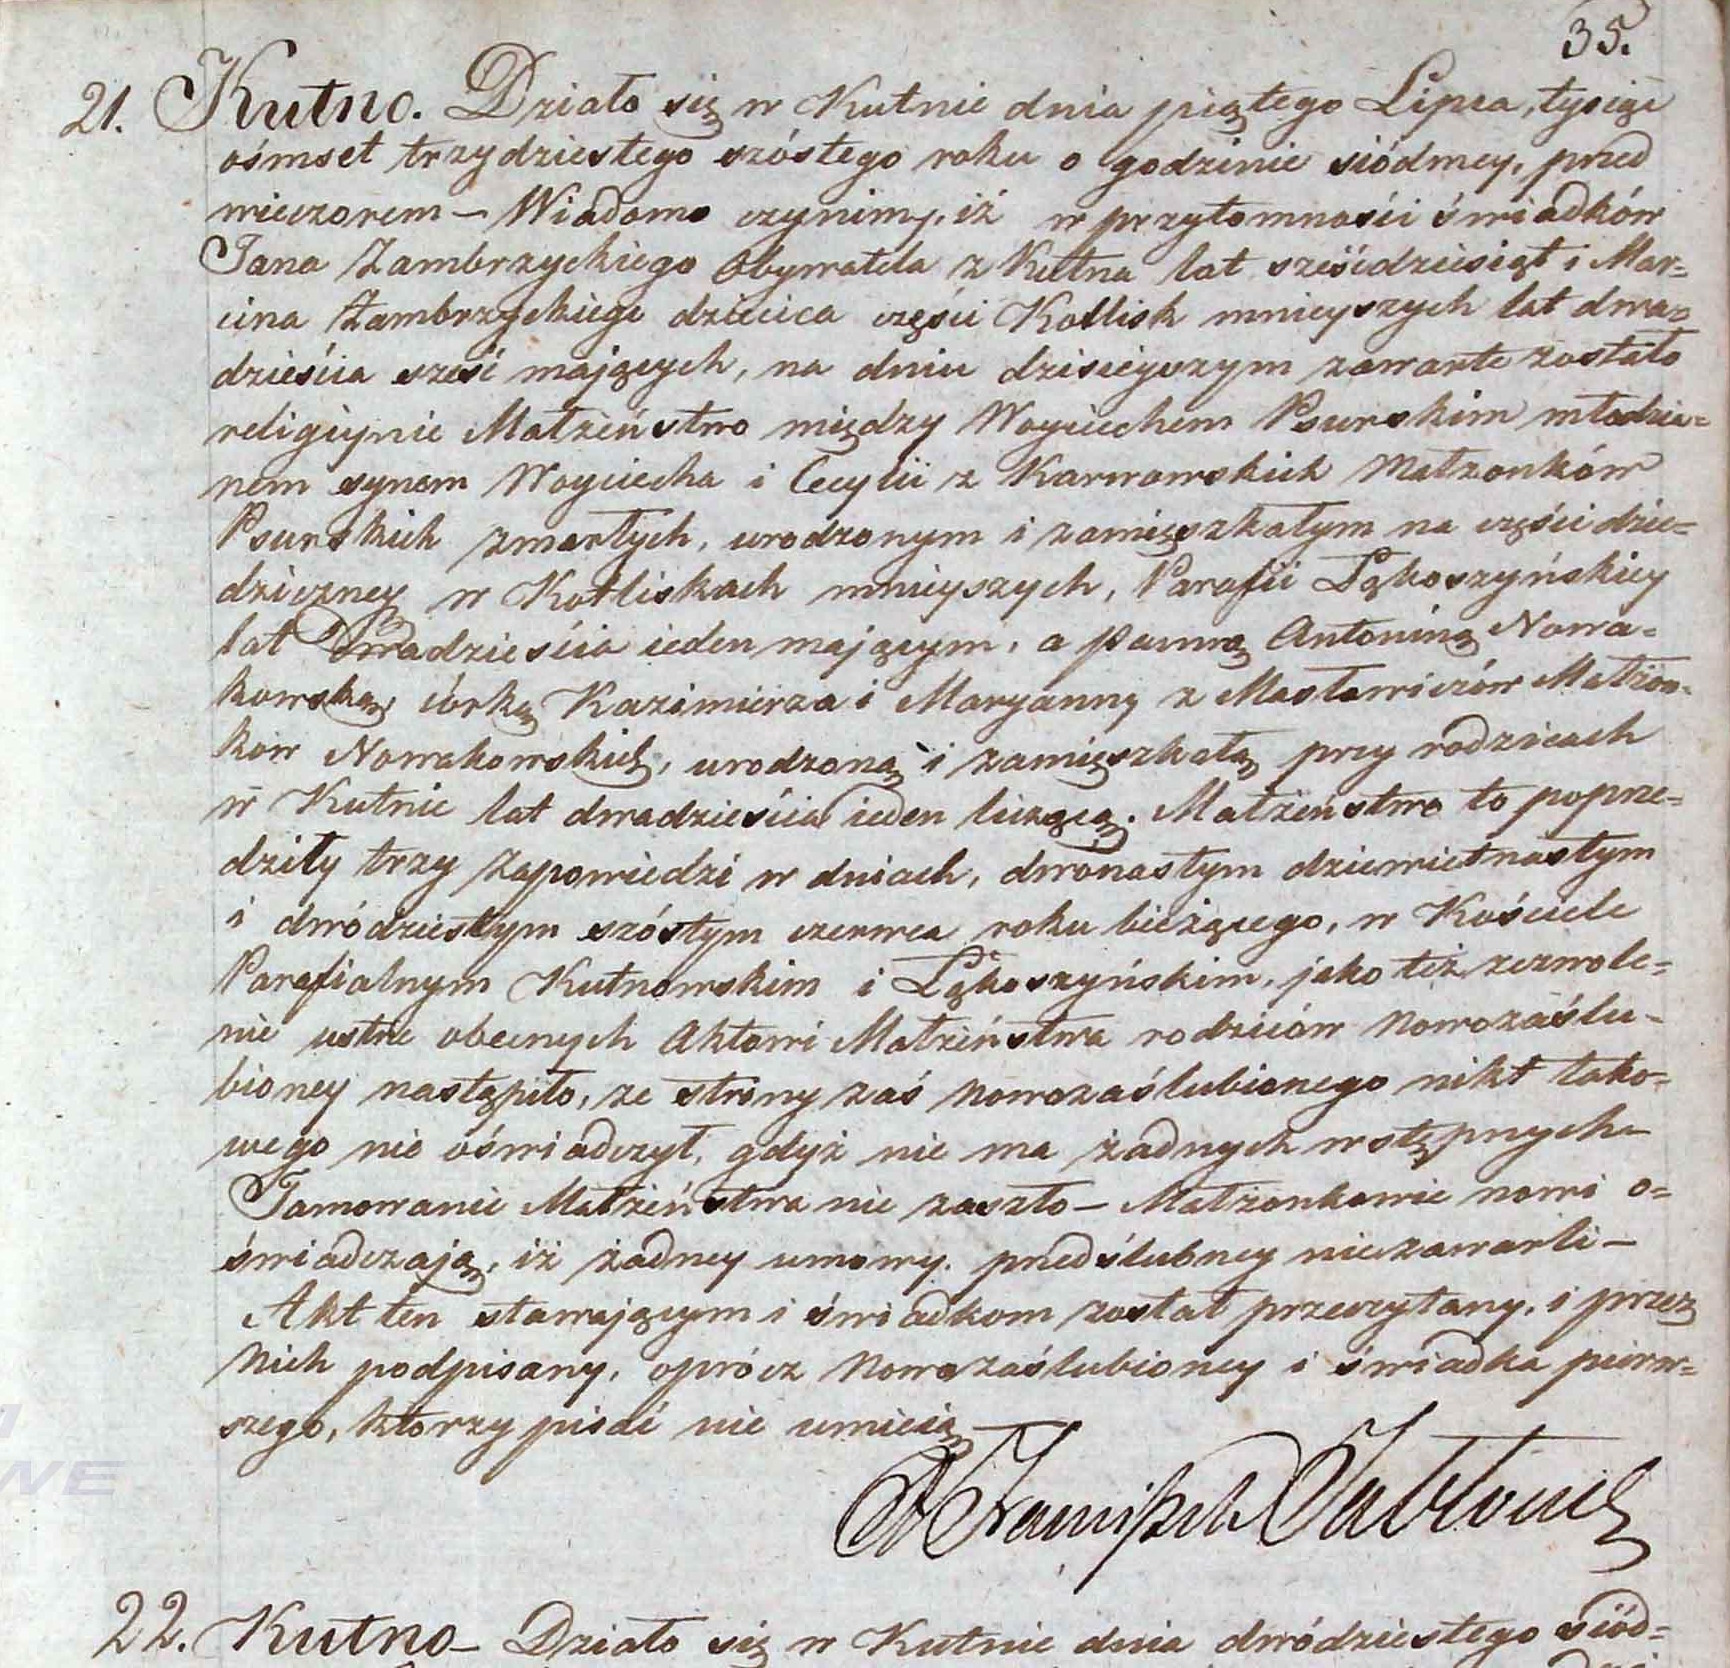 35.
21. Kutno. Działo się w Kutnie dnia piątego Lipca, tysiąc
ośmset trzydziestego szóstego roku o godzinie siódmey, przed
wieczorem – Wiadomo czynimy, iż w przytomności świadków
Jana Zambrzyckiego Obywatela z Kutna lat sześćdziesiąt i Mar=
cina Zambrzyckiego dziedzica części Kotlisk mnieyszych lat dwa=
dzieścia sześć mających, na dniu dzisieyszym zawarte zostało
religiynie Małżeństwo między Woyciechem Psurskim młodzia=
nem synem Woyciecha i Cecylii z Karwowskich Małżonków
Psurskich zmarłych, urodzonym i zamięszkałym na części dzie=
dziczney w Kotliskach mnieyszych, Parafii Łąkoszyńskiey
lat dwadzieścia ieden mającym, a Panną Antoniną Nowa=
kowską, córką Kazimierza i Maryanny z Masłowiczów Małżon=
ków Nowakowskich, urodzoną i zamięszkałą przy rodzicach
w Kutnie lat dwadzieścia ieden liczącą. Małżeństwo to poprze=
dziły trzy Zapowiedzi w dniach, dwónastym dziewiętnastym
i dwódziestym szóstym czerwca roku bieżącego, w Kościele
Parafialnym Kutnowskim i Łąkoszyńskim, jako też zezwole=
nie ustne obecnych Aktowi Małżeństwa rodziców Nowozaślu=
bioney nastąpiło, ze strony zaś Nowozaślubionego nikt tako=
wego nie oświadczył, gdyż nie ma żadnych wstępnych –
Tamowanie Małżeństwa nie zaszło – Małżonkowie nowi o=
świadczają, iż żadney umowy przedślubney niezawarli –
Akt ten stawającym i świadkom został przeczytany, i przez
Nich podpisany, oprócz Nowozaślubioney i świadka pierw=
szego, którzy pisać nie umieią
X Franciszek Jabłoński
22. Kutno – Działo się w Kutnie dnia dwódziestego siód=